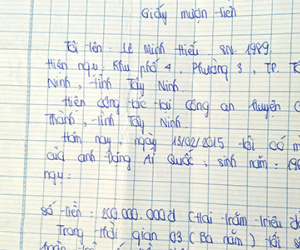 Giấy mượn tiền
Tôi tên: Lê Minh Hiếu SN. 1989.
Hiện ngụ: Khu phố 4, Phường 3, TP. T
Ninh, tỉnh Tây Ninh.
Hiện công tác tại Công an huyện C
Thành, tỉnh Tây Ninh.
Hôm nay, ngày 13/02/2015 tôi có m
của anh Quốc, sinh năm: 196
ngụ:
số tiền: 200.000.000đ (Hai trăm triệu đ
Trong thời gian 03 (Ba năm) tôi